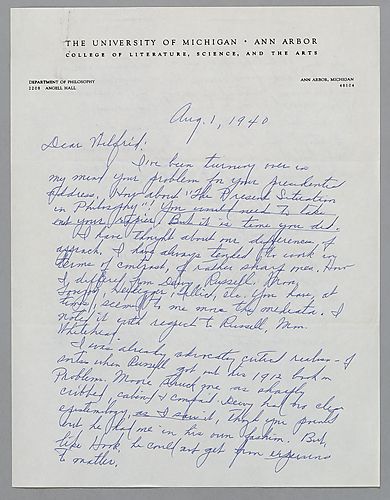 THE UNIVERSITY OF MICHIGAN · ANN ARBOR
COLLEGE OF LITERATURE, SCIENCE, AND THE ARTS
DEPARTMENT OF PHILOSOPHY
2208 ANGELL HALL
ANN ARBOR, MICHIGAN
48104
Aug. 1, 1940
Dear Wilfrid:
I've been turning over in
my mind your problem for your presidential
address. How about "The Present Situation
in Philosophy"! You would need to take
out your rapier. But it is time you did.
I have thought about our differences of
approach. I have always tended to work in
terms of contrast, of rather sharp ones. How
I differ from Dewey, Russell, Moore,
etc. You have, at
times, seemed to me more the mediator. I
noted it with respect to Russell, Moore
Whitehead.
I was already advocating critical realism of
sorts when Russell got out his 1912 book on
Problems. Moore struck me as sharply
cribbed, cabin'd & confined. Dewey had no clear
epistemology, as I saw it, though you
but he had one in his own fashion. But,
like Hook, he could not get from experience
to matter.